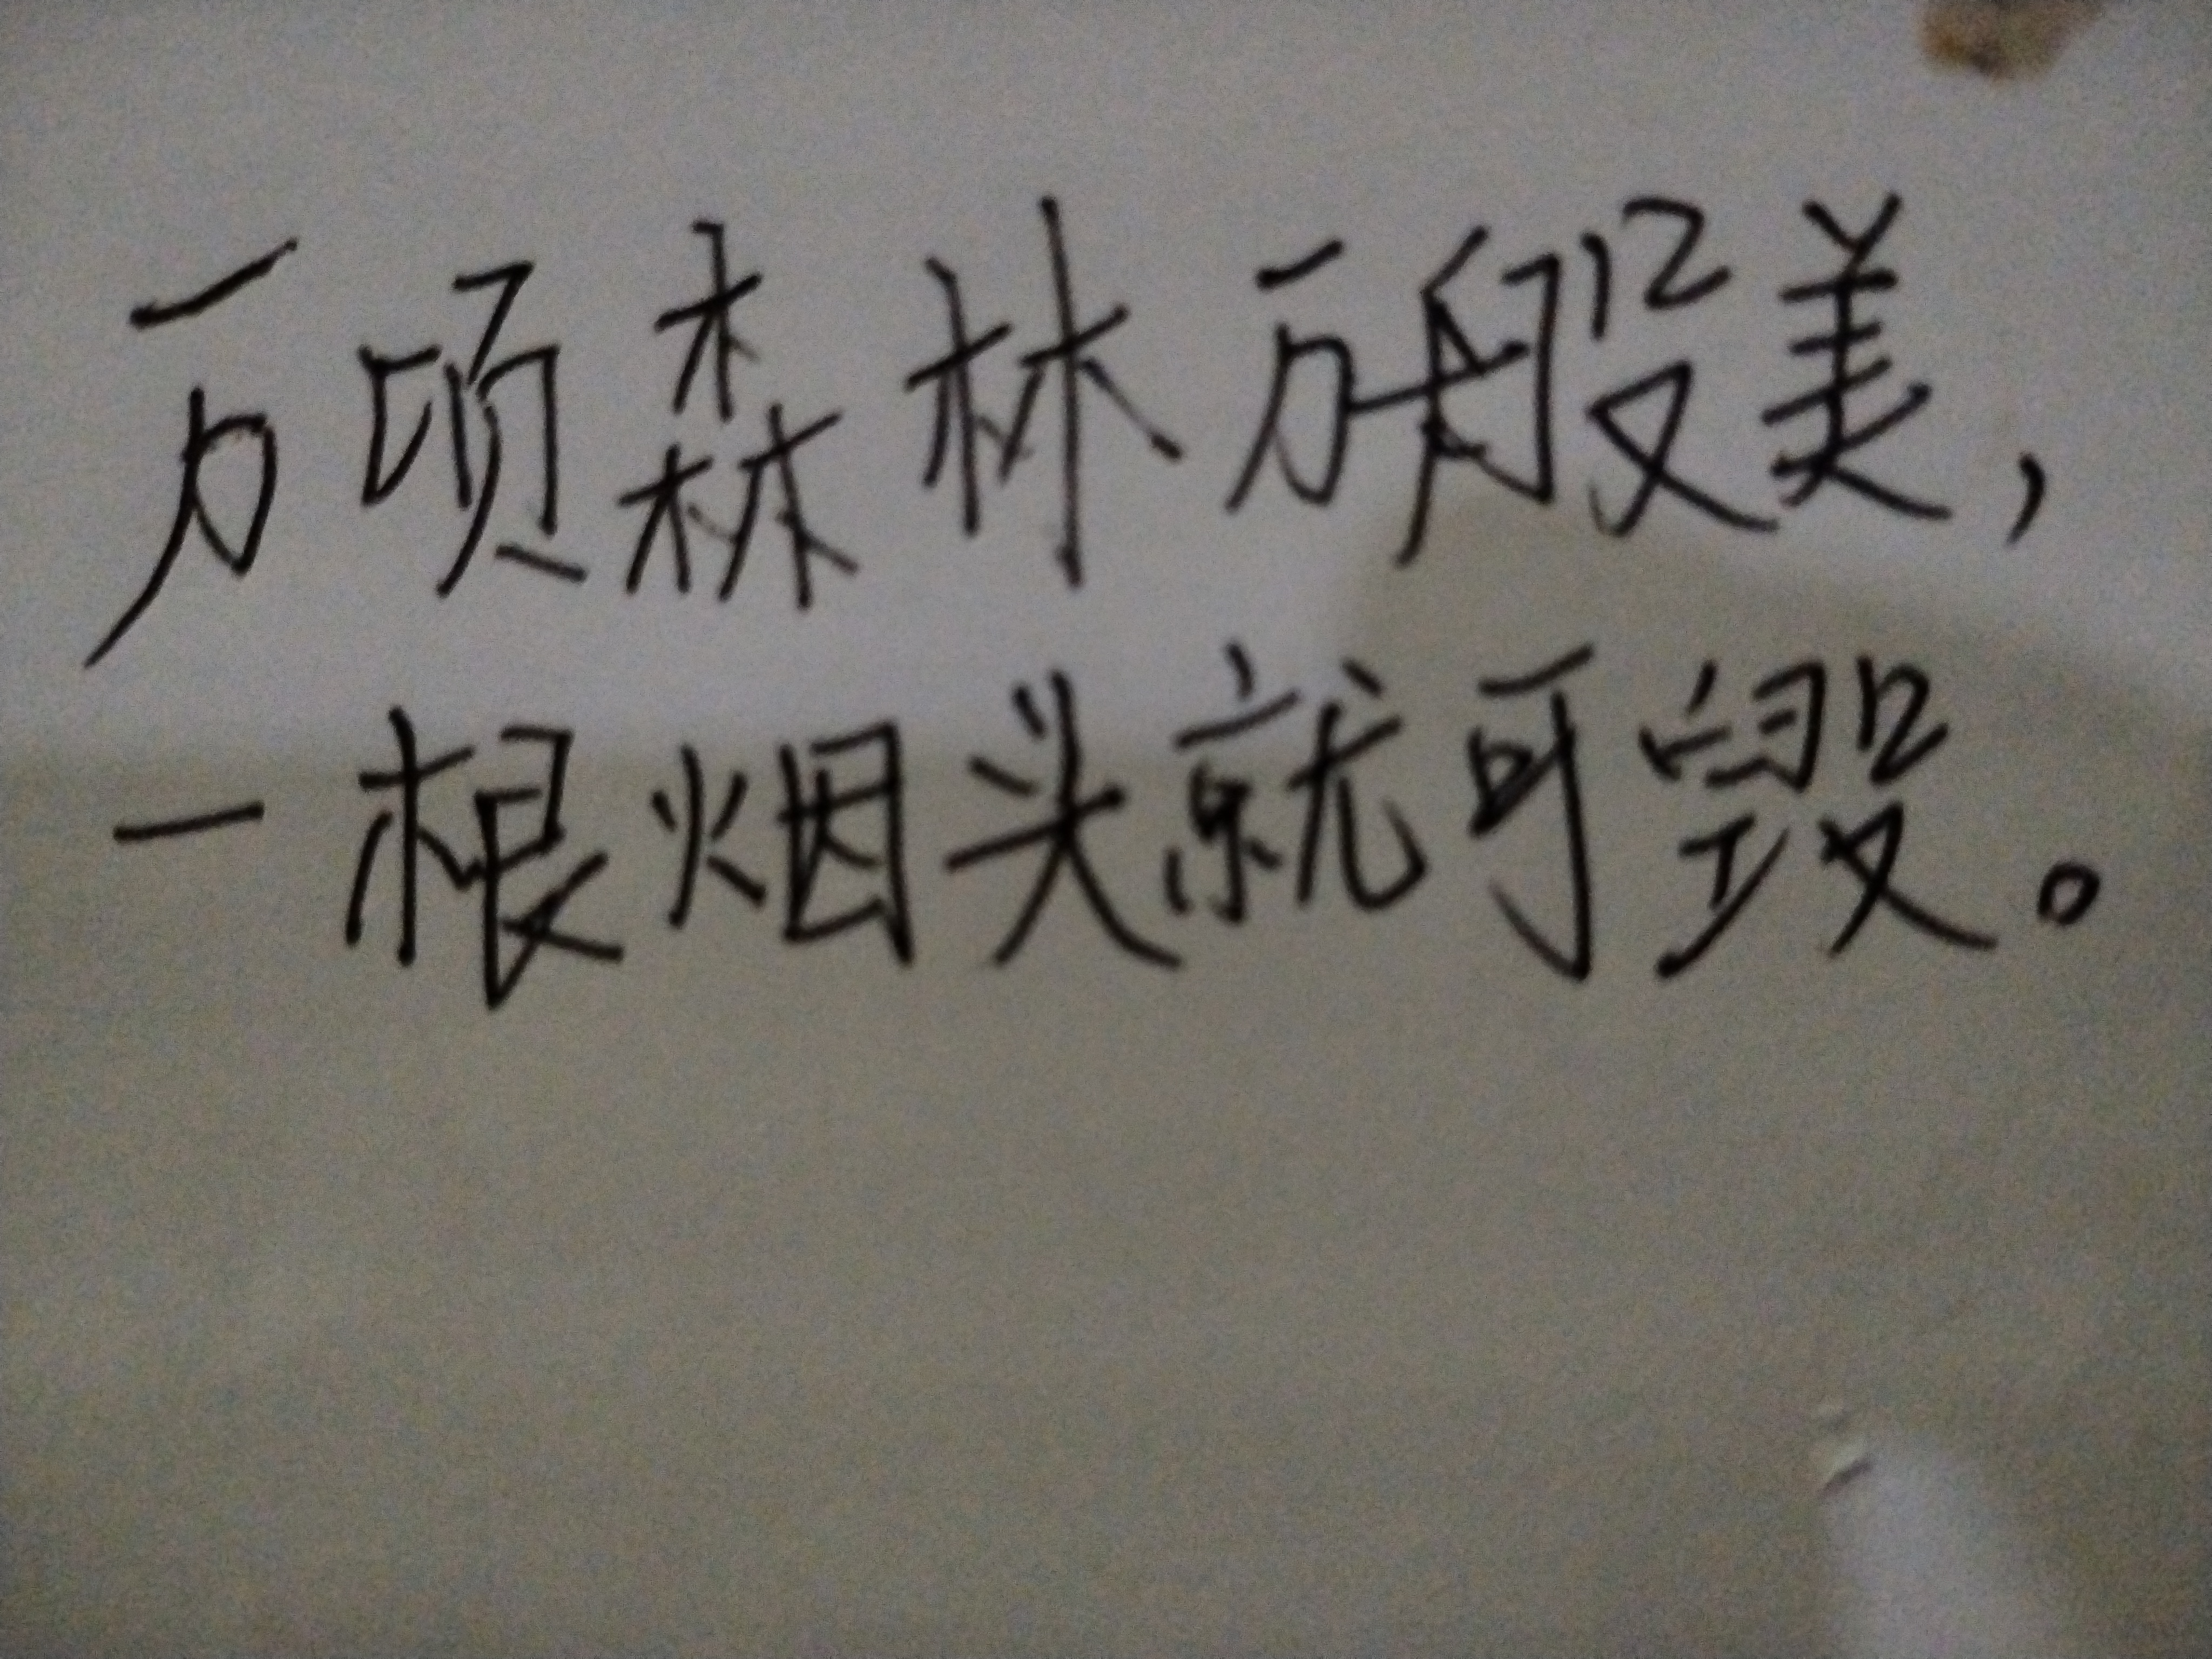 万顷森林万般美，
一根烟头就可毁。